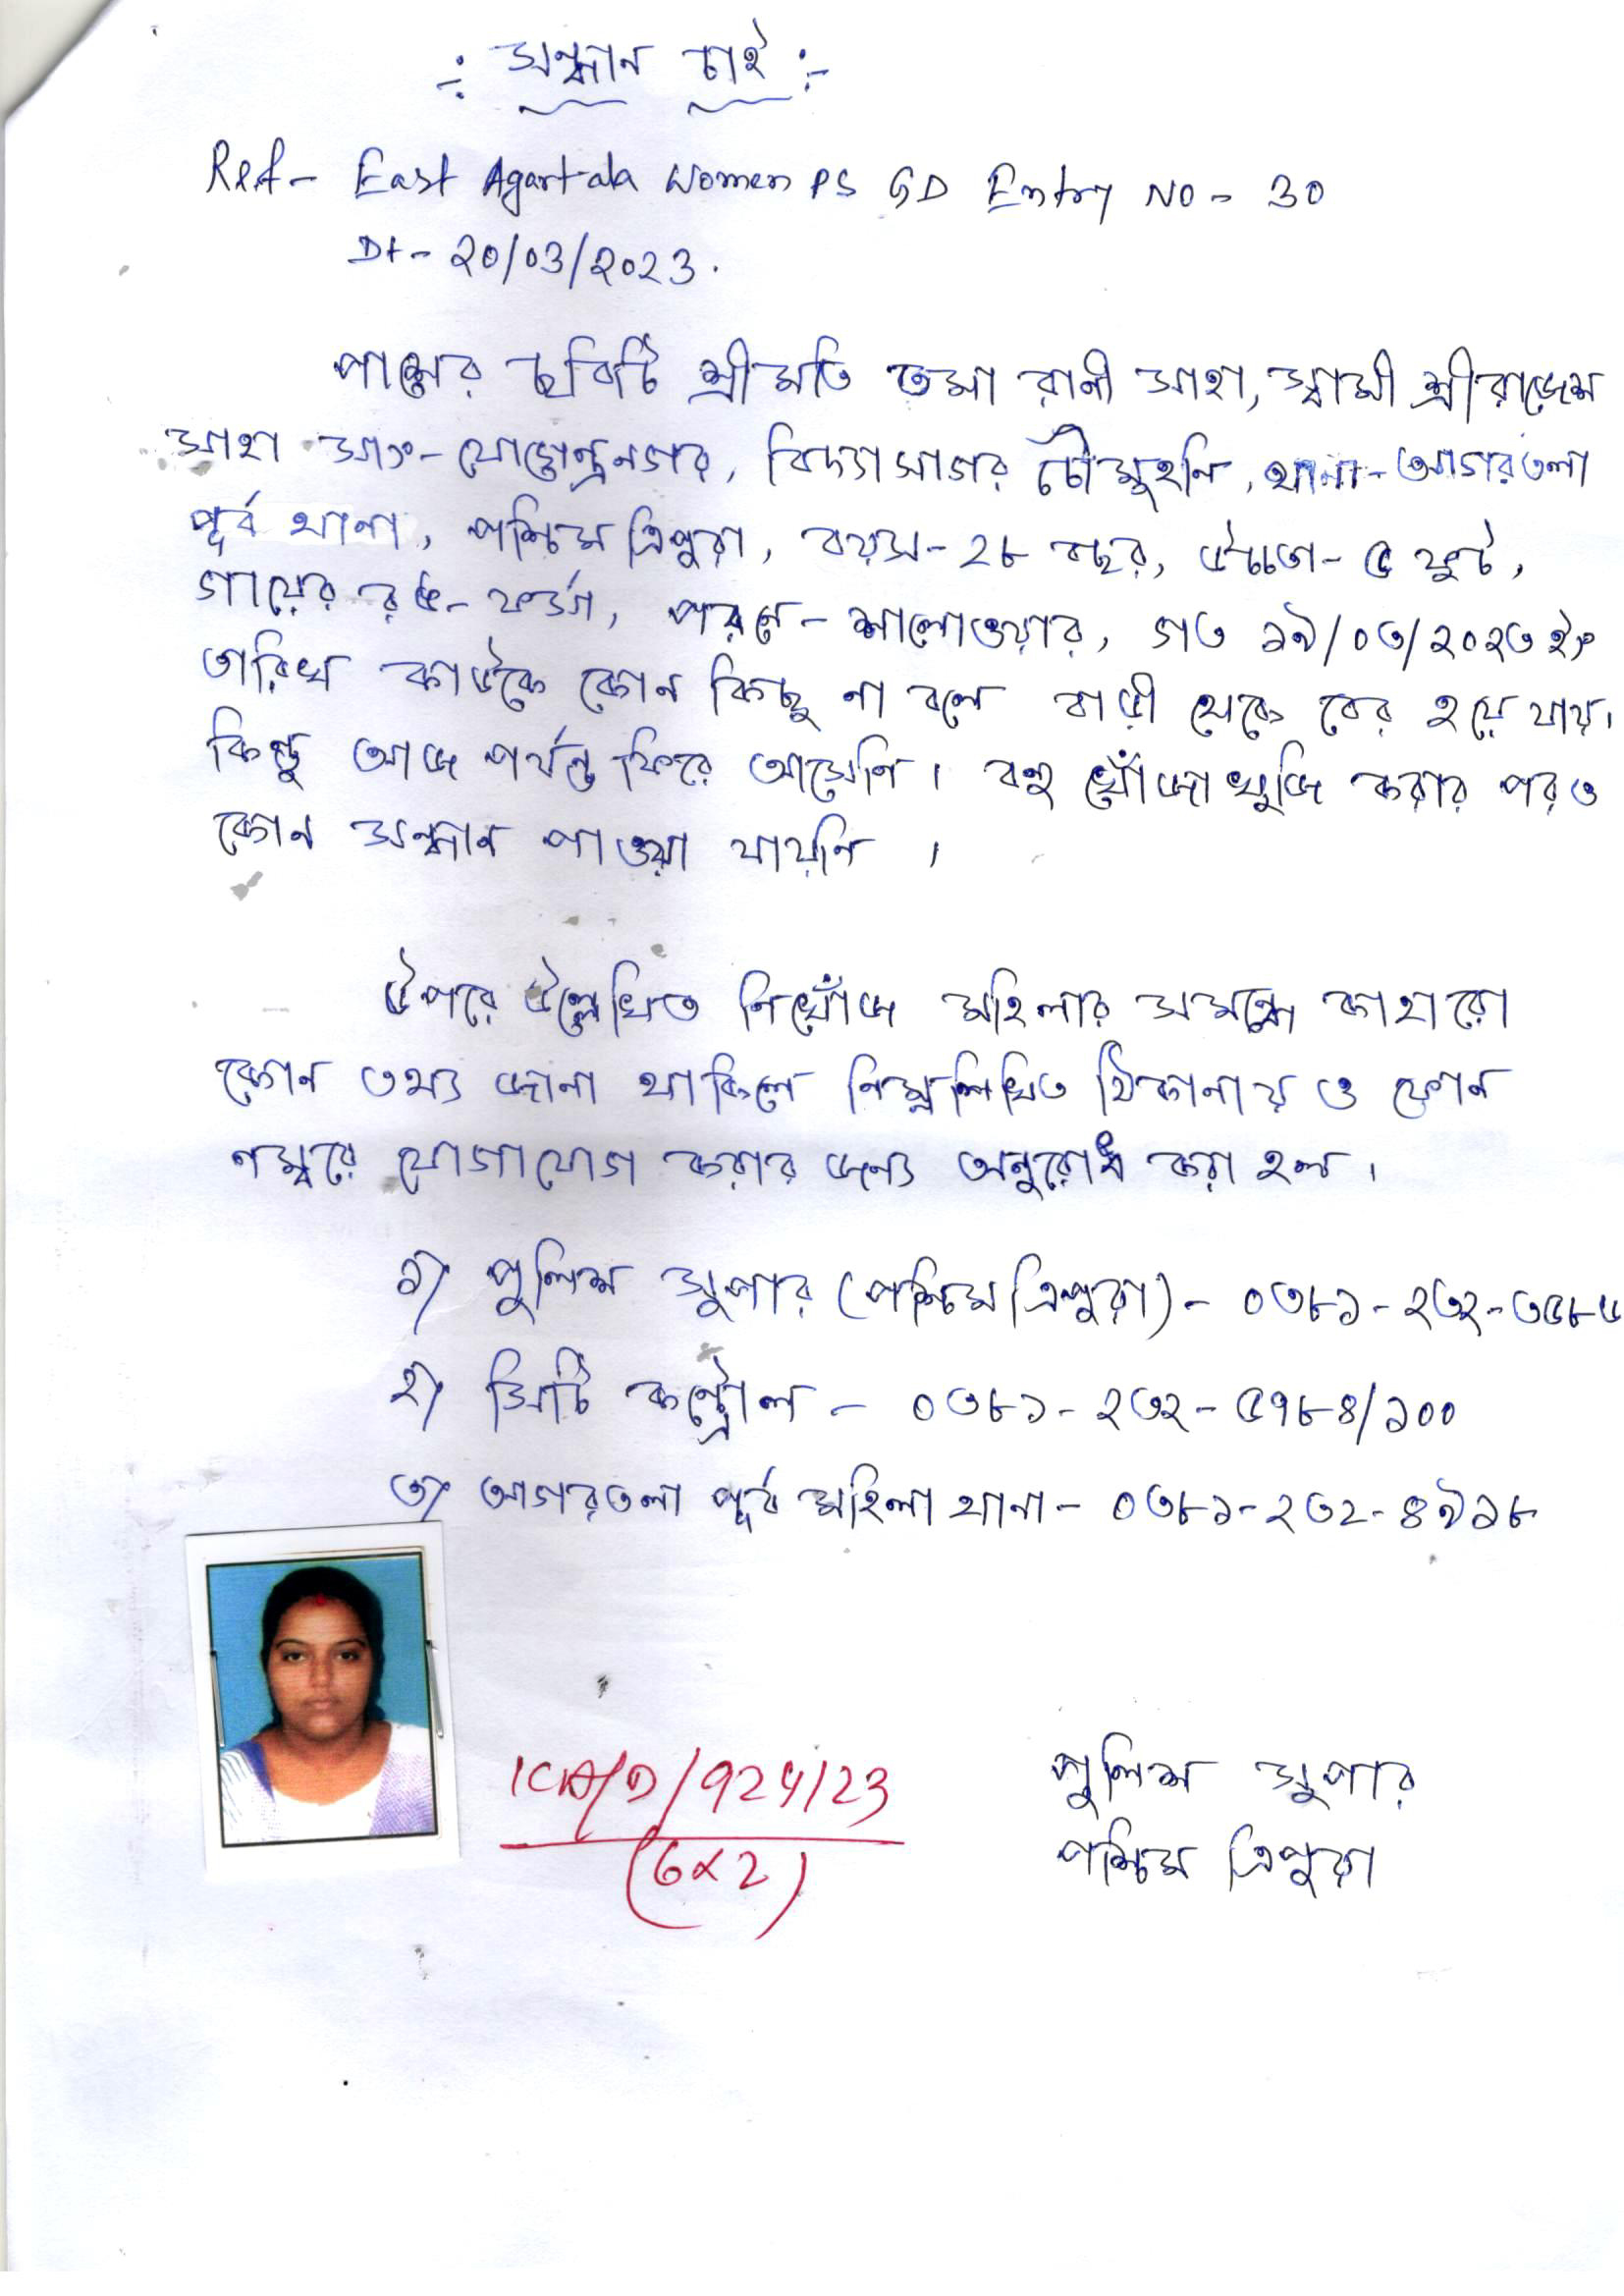 -: সন্ধান চাই :-
Ref - East Agartala Women PS GD Entry No - 30
Dt - 20/03/2023.
পাশের ছবিটি শ্রীমতি তমা রানী সাহা, স্বামী শ্রী রাজেশ
সাহা সাং - যোগেন্দ্রনগর, বিদ্যাসাগর চৌমুহনি, থানা - আগরতলা
পূর্ব থানা, পশ্চিম ত্রিপুরা, বয়স - ২৮ বছর, উচ্চতা - ৫ ফুট,
গায়ের রঙ - ফর্সা, পরনে - শালোওয়ার, গত ১৯/০৩/২০২৩ ইং
তারিখ কাউকে কোন কিছু না বলে বাড়ী থেকে বের হয়ে যায়।
কিন্তু আজ পর্যন্ত ফিরে আসেনি। বহু খোঁজা খুজি করার পরও
কোন সন্ধান পাওয়া যায়নি ।
উপরে উল্লেখিত নিখোঁজ মহিলার সমন্ধে কাহারো
কোন তথ্য জানা থাকিলে নিম্নলিখিত ঠিকানায় ও ফোন
নম্বরে যোগাযোগ করার জন্য অনুরোধ করা হল ।
১) পুলিশ সুপার (পশ্চিম ত্রিপুরা) - ০৩৮১ - ২৩২ - ৩৫৮৬
২) সিটি কন্ট্রোল - ০৩৮১ - ২৩২ - ৫৭৮৪/১০০
৩) আগরতলা পূর্ব মহিলা থানা - ০৩৮১ - ২৩২ - ৪৯১৮
ICA/D/924/23
(6x2)
পুলিশ সুপার
পশ্চিম ত্রিপুরা